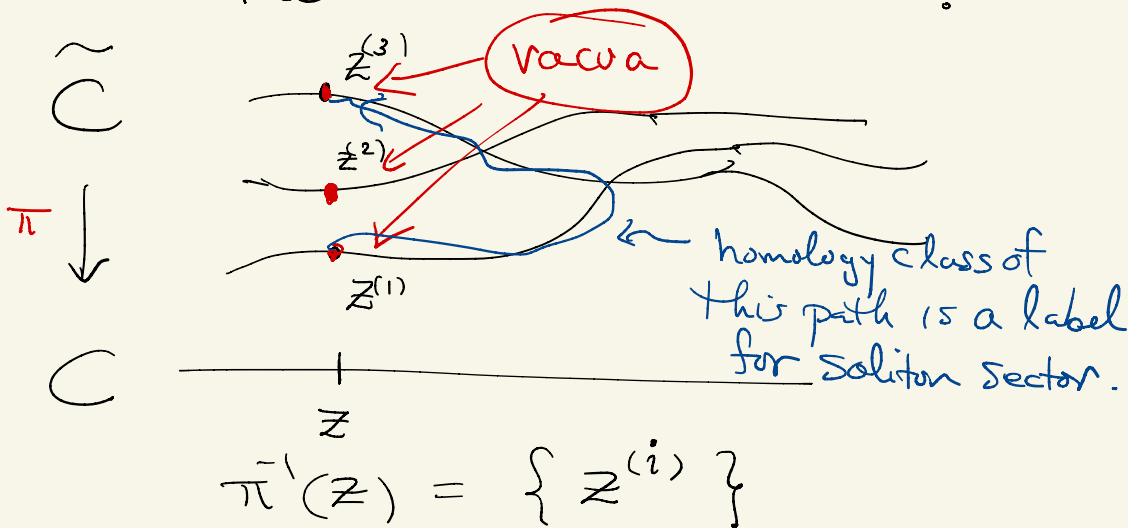 C̃
z⁽³⁾
vacua
z⁽²⁾
π
z⁽¹⁾
homology class of
this path is a label
for soliton sector.
C
z
π⁻¹(z) = { z⁽ⁱ⁾ }